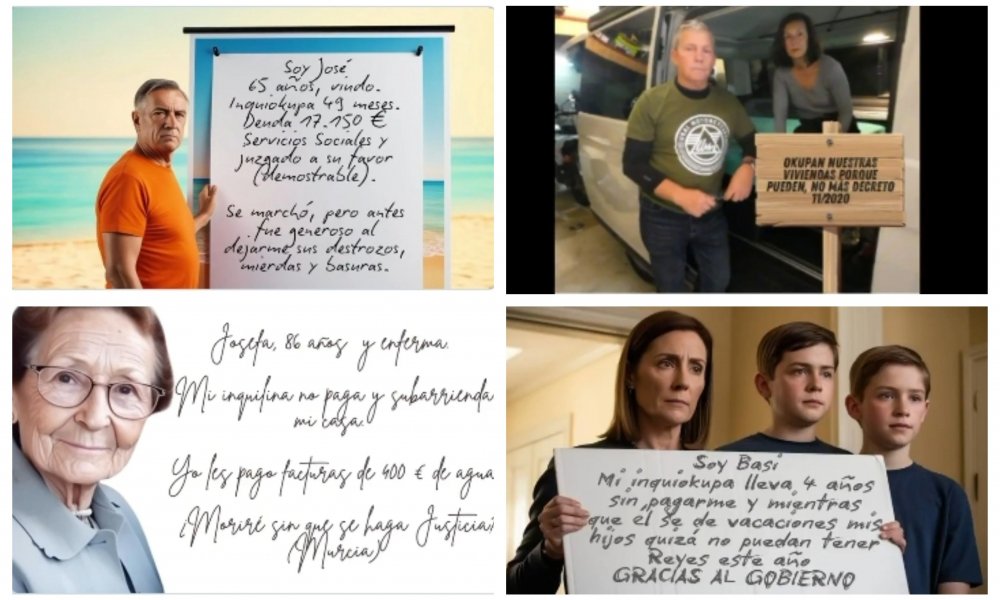 Soy José
65 años, viudo.
Inquiokupa 49 meses.
Deuda 17.150 €
Servicios Sociales y
juzgado a su favor
(demostrable).
Se marchó, pero antes
fue generoso al
dejarme sus destrozos,
mierdas y basuras.
OKUPAN NUESTRAS
VIVIENDAS PORQUE
PUEDEN, NO MÁS DECRETO
11/2020
Josefa, 86 años y enferma.
Mi inquilina no paga y subarrienda
mi casa.
Yo les pago facturas de 400 € de agua
¡Moriré sin que se haga Justicia!
(Murcia)
Soy Basi
Mi inquiokupa lleva 4 años
sin pagarme y mientras
que él se de vacaciones mis
hijos quizá no puedan tener
Reyes este año
GRACIAS AL GOBIERNO